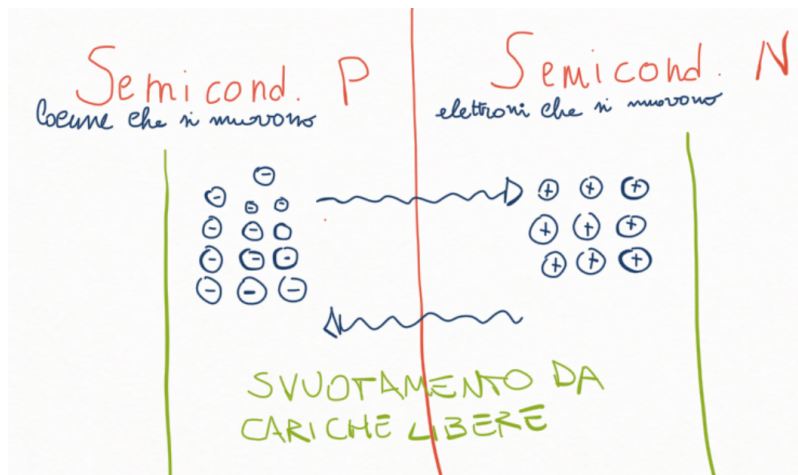 Semicond. P
lacune che si muovono
Semicond. N
elettroni che si muovono
SVUOTAMENTO DA
CARICHE LIBERE